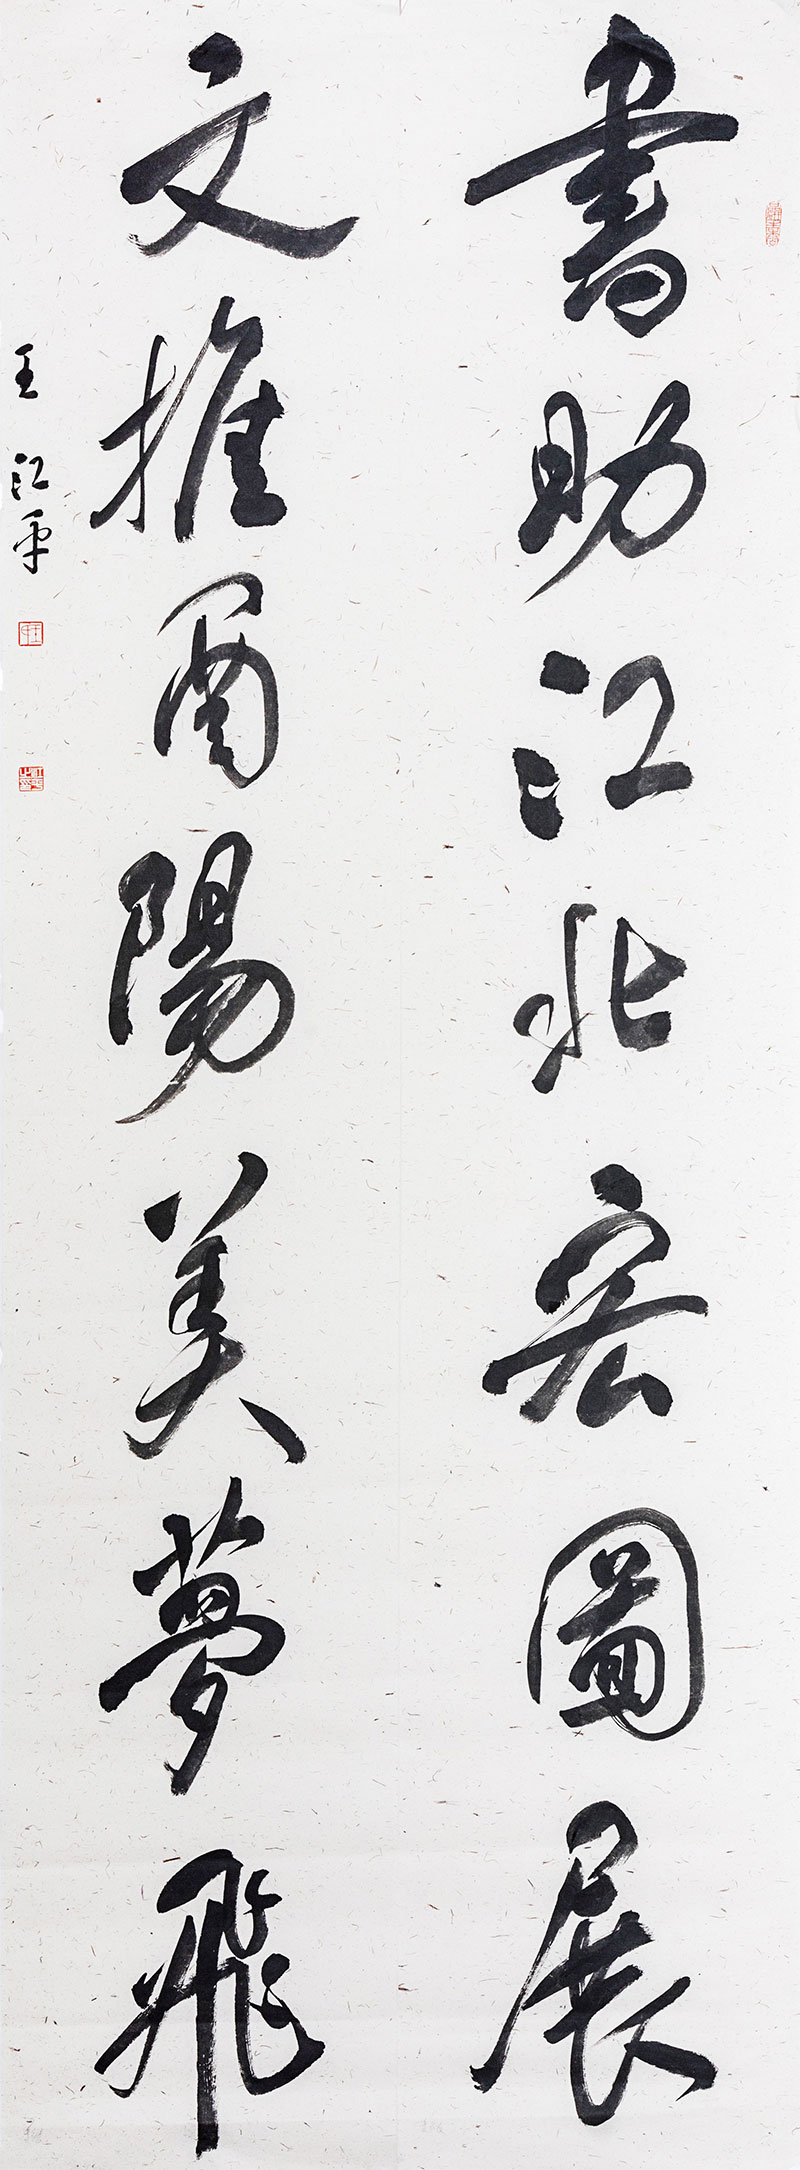 書助江北宏圖展
文推酉陽美夢飛
王江平